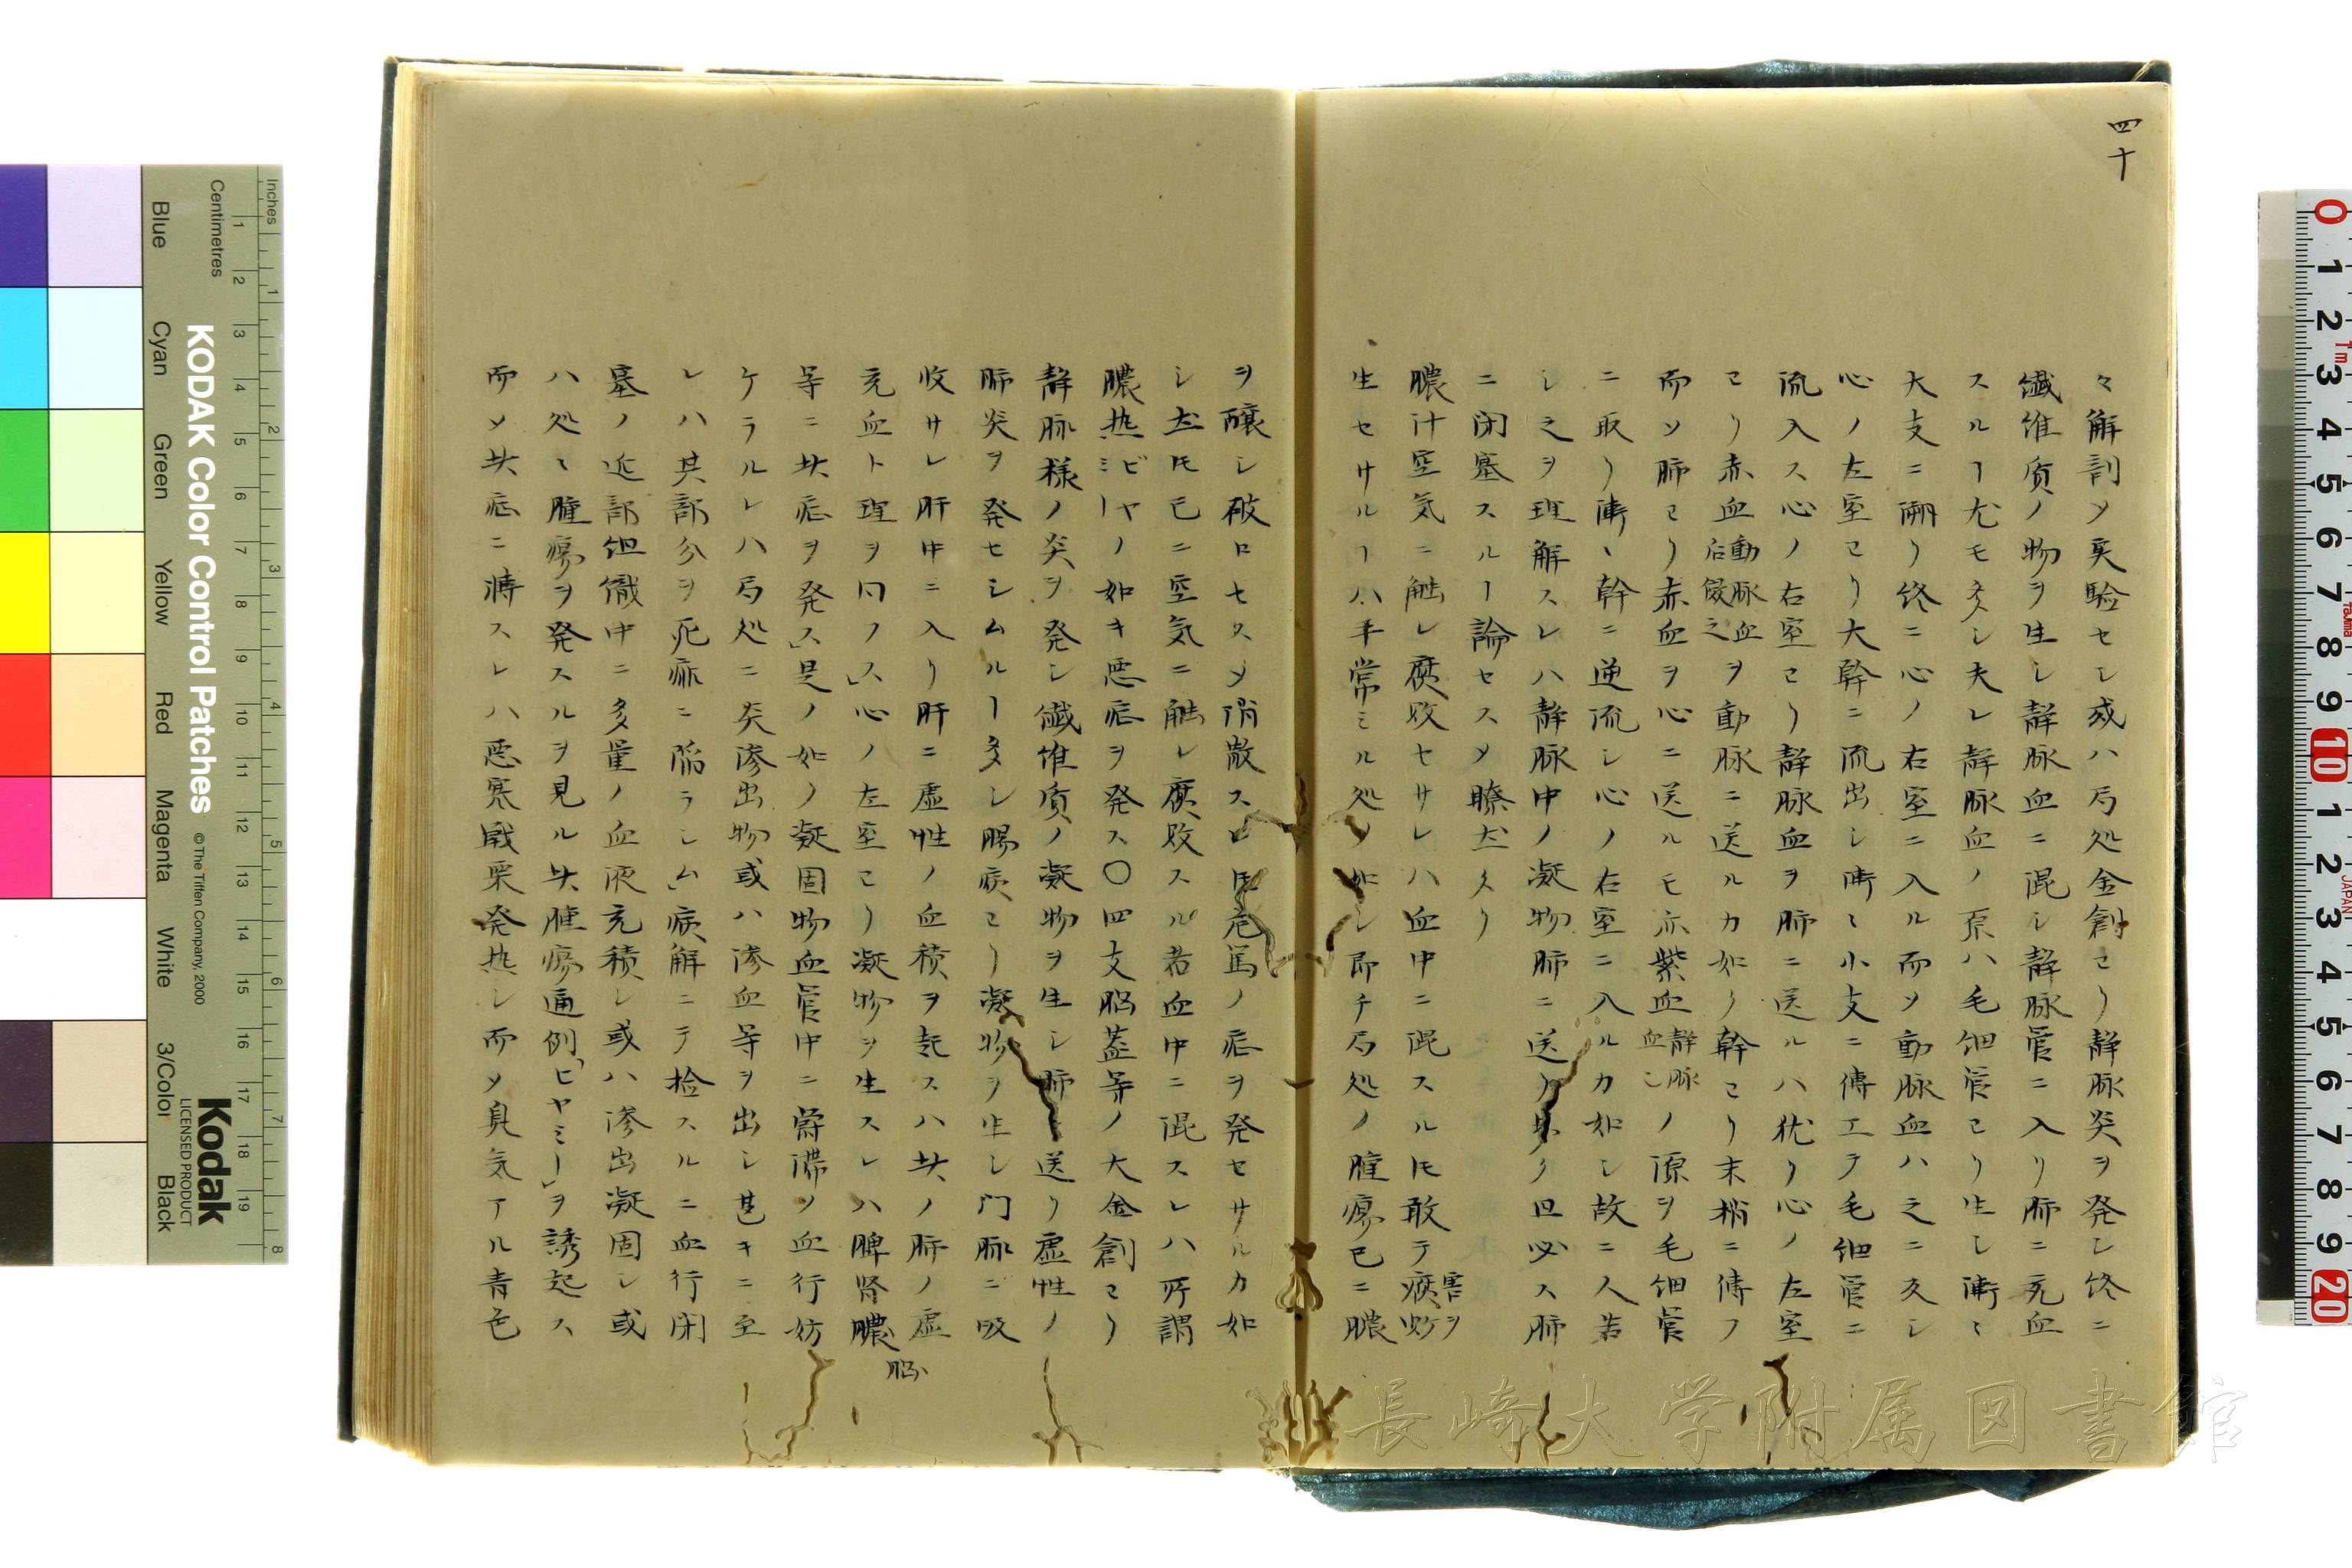 四十
々解剖〆実験セシ或ハ局処金創ヨリ静脉炎ヲ発シ終ニ
繊維质ノ物ヲ生シ静脉血ニ混シ静脉管ニ入リ肺ニ充血
スルヿ尤モ多シ夫レ静脉血ノ原ハ毛細管ヨリ生シ漸々
大支ニ湊リ終ニ心ノ右室ニ入ル而〆動脉血ハ之ニ反シ
心ノ左室ヨリ大幹ニ流出シ漸々小支ニ傳エテ毛細管ニ
流入ス心ノ右室ヨリ静脉血ヲ肺ニ送ルハ犹ヲ心ノ左室
ヨリ赤血動脉血后傚之ヲ動脉ニ送ルカ如ク幹ヨリ末梢ニ傳フ
而〆肺ヨリ赤血ヲ心ニ送ルモ亦紫血静脉血ノ源ヲ毛細管
ニ取リ漸々幹ニ逆流シ心ノ右室ニ入ルカ如シ故ニ人若
シ之ヲ理解スレハ静脉中ノ凝物肺ニ送リ但必ス肺
ニ閉塞スルヿ論セス〆瞭然タリ
膿汁空気ニ触レ腐敗セサレハ血中ニ混スルトモ敢テ害ヲ
生セサルヿハ平常ミル処ノ如シ即チ局処ノ腫瘍已ニ膿
ヲ醸シ破ロセス〆消散スレトモ危篤ノ症ヲ発セサルカ如
シ然トモ已ニ空気ニ触レ腐敗スル者血中ニ混スレハ所謂
膿热ピヤミーノ如キ悪症ヲ発ス〇四支脳蓋等ノ大金創ヨリ
静脉様ノ炎ヲ発シ繊維质ノ凝物ヲ生シ肺ニ送リ虚性ノ
肺炎ヲ発セシムルヿ多シ腸疾ヨリ凝物ヲ生シ门脉ニ吸
收サレ肝中ニ入リ肝ニ虚性ノ血積ヲ起スハ其ノ肺ノ虚
充血ト理ヲ同フス」心ノ左室ヨリ凝物ヲ生スレハ脾腎脳
等ニ其症ヲ発ス」是ノ如ク凝固物血管中ニ留滞〆血行妨
ケラルレハ局処ニ炎滲出物或ハ滲血等ヲ出シ甚キニ至
レハ其部分ヲ死痲ニ陷ラシム」病解ニテ検スルニ血行閉
塞ノ近部细織中ニ多量ノ血液充積シ或ハ滲出凝固シ或
ハ処々腫瘍ヲ発スルヲ見ル其腫瘍通例「ピヤミー」ヲ誘起ス
而〆其症ニ將スレハ悪寒戦栗発热シ而〆臭気アル青色
長崎大学附属図書館
KODAK Color Control Patches
© The Tiffen Company, 2000
Kodak
LICENSED PRODUCT
Inches
Centimetres
Blue Cyan Green Yellow Red Magenta White 3/Color Black